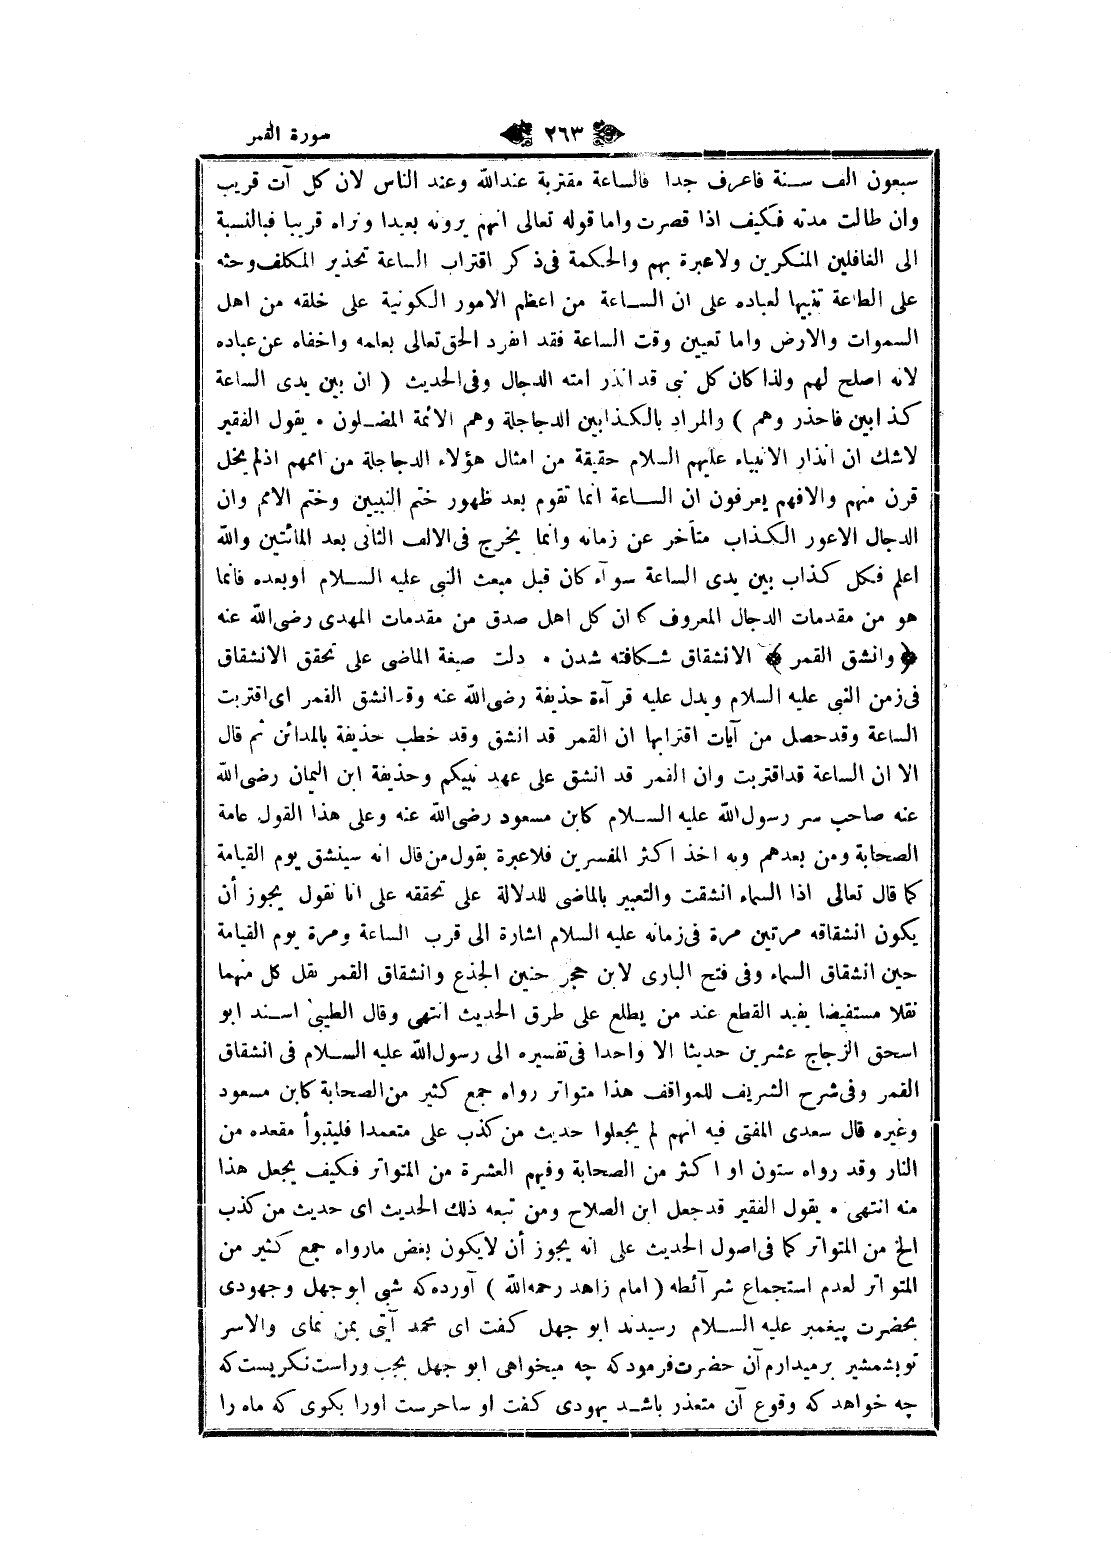 سورة القمر
٢٦٣
سبعون الف سنة فاعرف جدا فالساعة مقتربة عندالله وعند الناس لان كل آت قريب
وان طالت مدته فكيف اذا قصرت واما قوله تعالى انهم يرونه بعيدا ونراه قريبا فبالنسبة
الى الغافلين المنكرين ولاعبرة بهم والحكمة فى ذكر اقتراب الساعة تحذير المكلف وحثه
على الطاعة تنبيها لعباده على ان الساعة من اعظم الامور الكونية على خلقه من اهل
السموات والارض واما تعيين وقت الساعة فقد انفرد الحق تعالى بعلمه واخفاه عن عباده
لانه اصلح لهم ولذا كان كل نبى قد انذر امته الدجال وفى الحديث ( ان بين يدى الساعة
كذابين فاحذر وهم ) والمراد بالكذابين الدجاجلة وهم الائمة المضلون • يقول الفقير
لاشك ان انذار الانبياء عليهم السلام حقيقة من امثال هؤلاء الدجاجلة من اممهم اذ لم يخل
قرن منهم والافهم يعرفون ان الساعة انما تقوم بعد ظهور ختم النبيين وختم الامم وان
الدجال الاعور الكذاب متأخر عن زمانه وانما يخرج فى الالف الثانى بعد المائتين والله
اعلم فكل كذاب بين يدى الساعة سوآء كان قبل مبعث النبى عليه السلام اوبعده فانما
هو من مقدمات الدجال المعروف كا ان كل اهل صدق من مقدمات المهدى رضى الله عنه
﴿ وانشق القمر ﴾ الانشقاق شكافته شدن • دلت صيغة الماضى على تحقق الانشقاق
فى زمن النبى عليه السلام ويدل عليه قرآءة حذيفة رضى الله عنه وقد انشق القمر اى اقتربت
الساعة وقد حصل من آيات اقترابها ان القمر قد انشق وقد خطب حذيفة بالمدائن ثم قال
الا ان الساعة قد اقتربت وان القمر قد انشق على عهد نبيكم وحذيفة ابن اليمان رضى الله
عنه صاحب سر رسول الله عليه السلام كابن مسعود رضى الله عنه وعلى هذا القول عامة
الصحابة ومن بعدهم وبه اخذ اكثر المفسرين فلاعبرة بقول من قال انه سينشق يوم القيامة
كما قال تعالى اذا السماء انشقت والتعبير بالماضى للدلالة على تحققه على انا نقول يجوز أن
يكون انشقاقه مرتين مرة فى زمانه عليه السلام اشارة الى قرب الساعة ومرة يوم القيامة
حين انشقاق السماء وفى فتح البارى لابن حجر حنين الجذع وانشقاق القمر نقل كل منهما
نقلا مستفيضا يفيد القطع عند من يطلع على طرق الحديث انتهى وقال الطيبى اسند ابو
اسحق الزجاج عشرين حديثا الا واحدا فى تفسيره الى رسول الله عليه السلام فى انشقاق
القمر وفى شرح الشريف للمواقف هذا متواتر رواه جمع كثير من الصحابة كابن مسعود
وغيره قال سعدى المفتى فيه انهم لم يجعلوا حديث من كذب على متعمدا فليتبوأ مقعده من
النار وقد رواه ستون او اكثر من الصحابة وفيهم العشرة من المتواتر فكيف يجعل هذا
منه انتهى • يقول الفقير قد جعل ابن الصلاح ومن تبعه ذلك الحديث اى حديث من كذب
الخ من المتواتر كما فى اصول الحديث على انه يجوز أن لايكون بعض مارواه جمع كثير من
المتواتر لعدم استجماع شرآئطه ( امام زاهد رحمه الله ) آورده كه شبى ابو جهل وجهودى
بحضرت پيغمبر عليه السلام رسيدند ابو جهل كفت اى محمد آيتى بمن نماى والاسر
تو بشمشير برميدارم آن حضرت فرمود كه چه ميخواهى ابو جهل بجب وراست نكريست كه
چه خواهد كه وقوع آن متعذر باشد يهودى كفت او ساحرست اورا بكوى كه ماه را